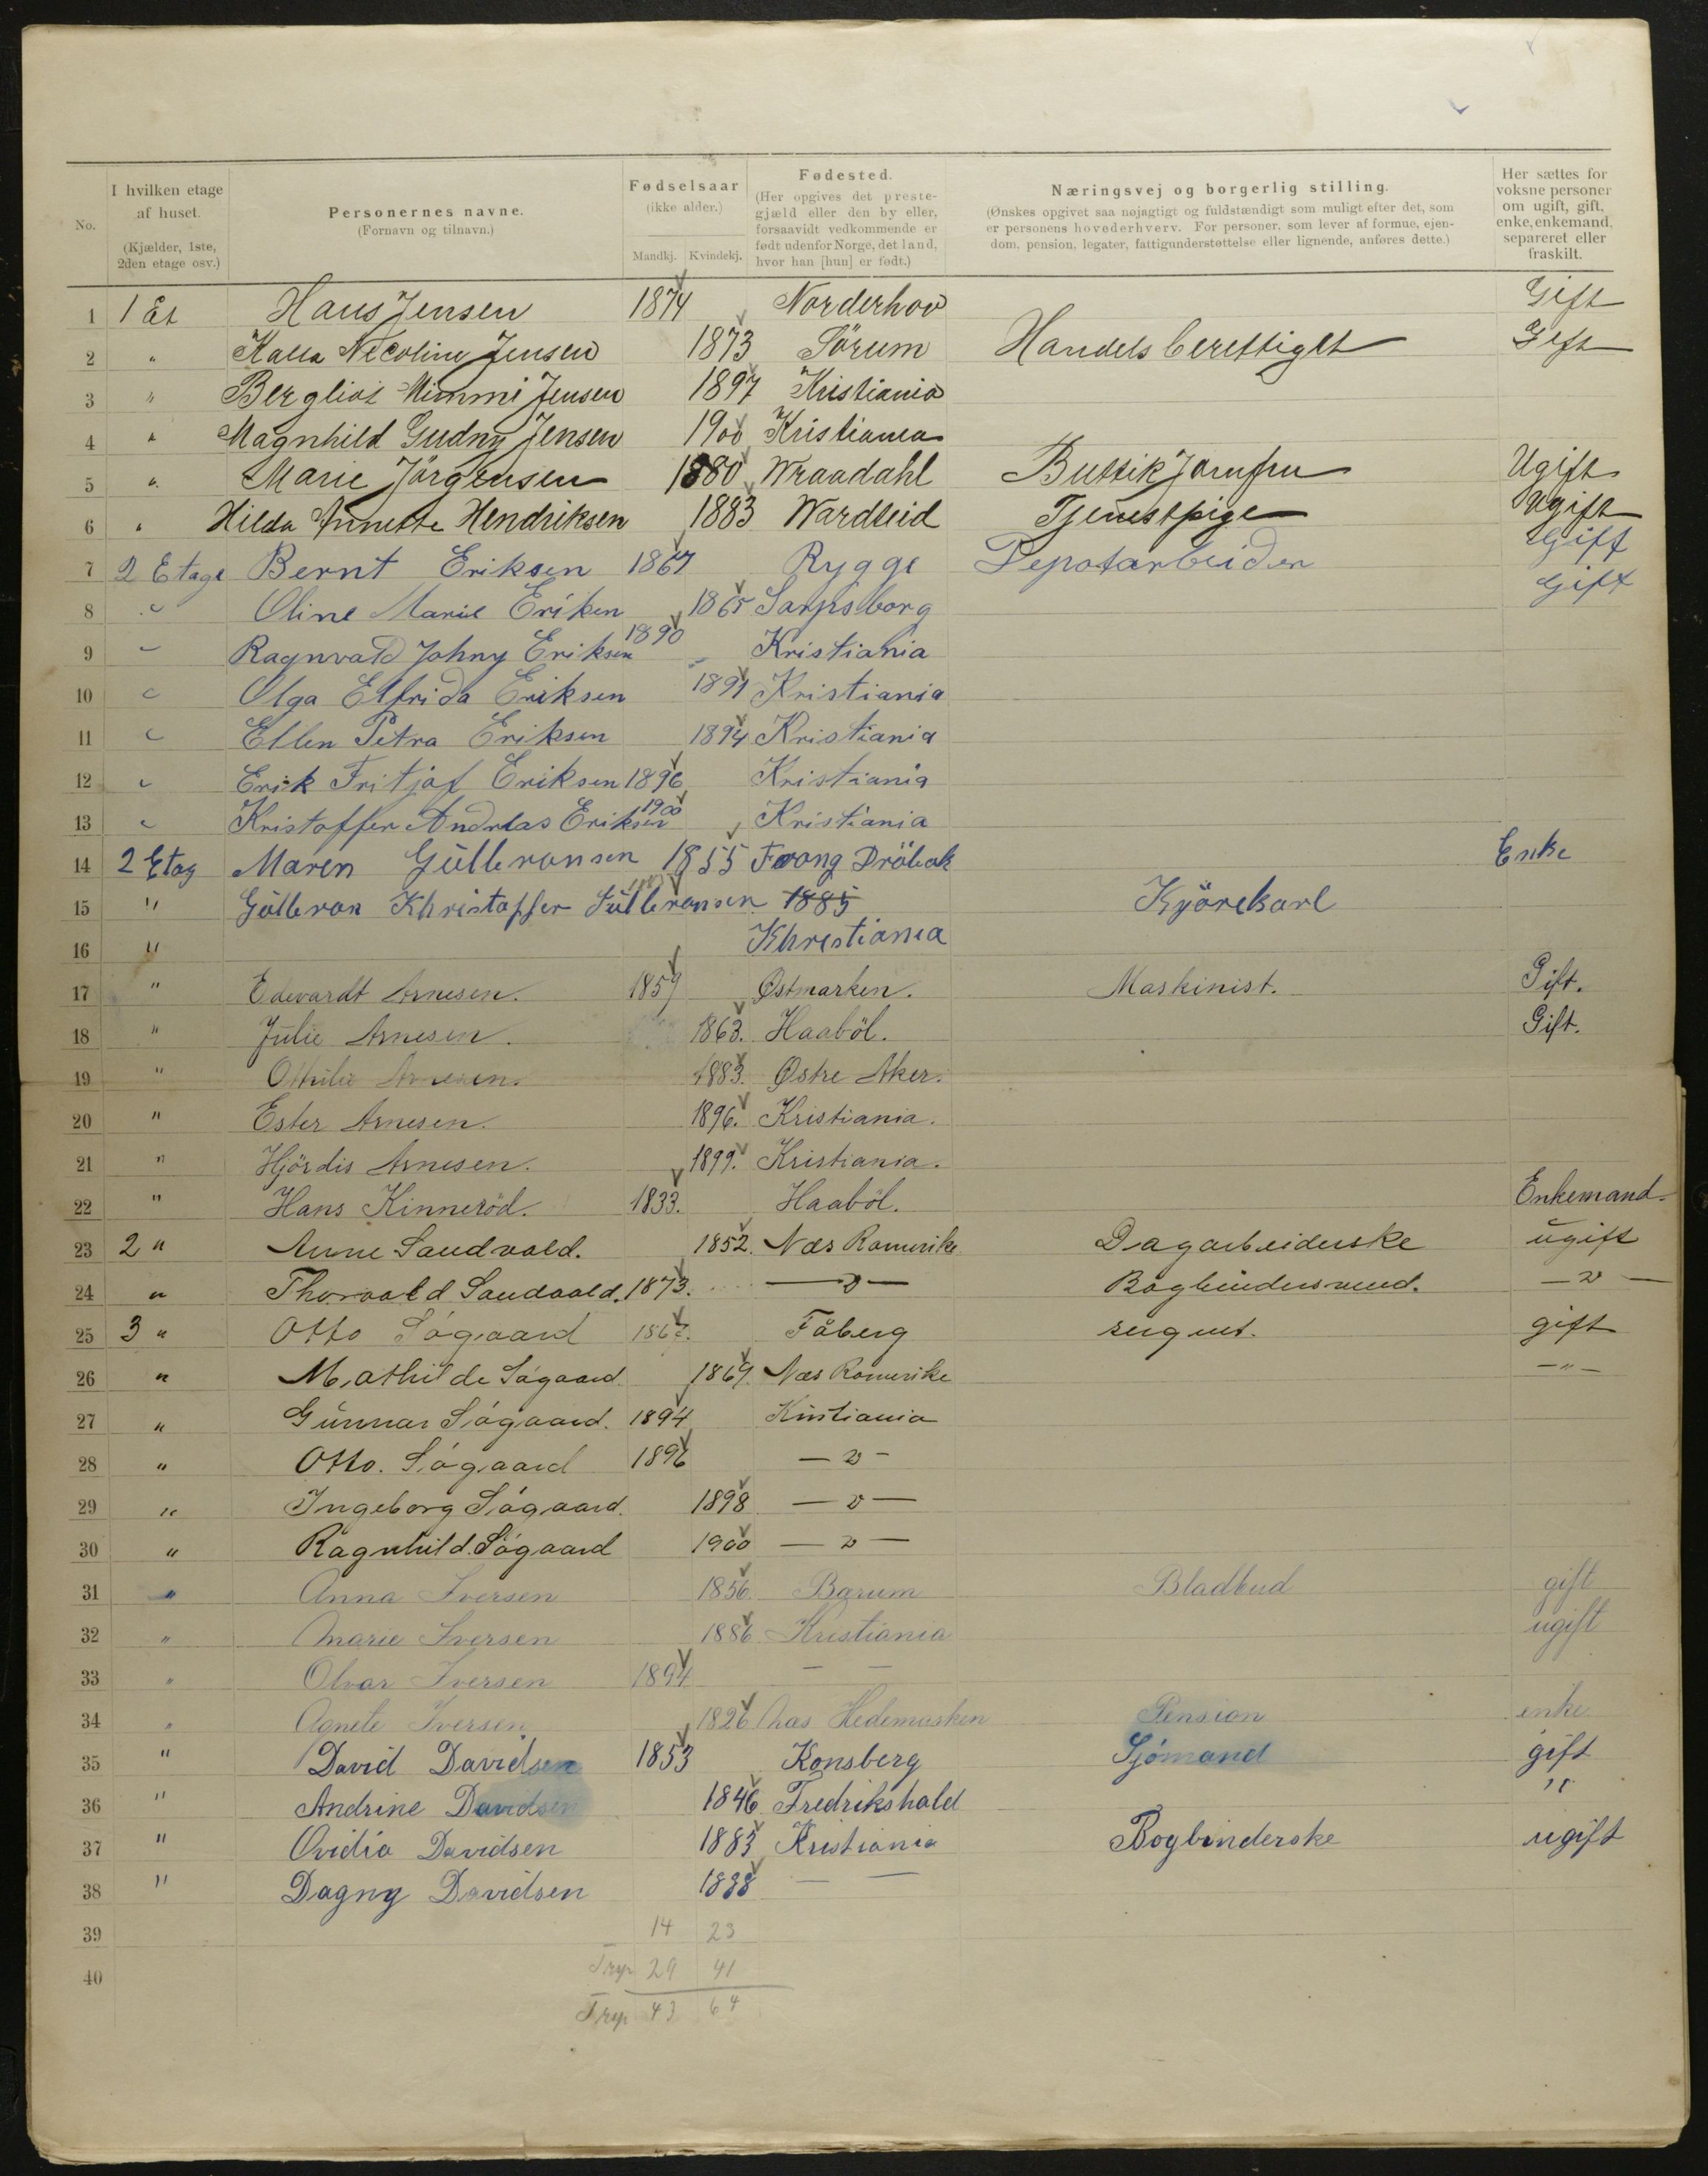 No.
I hvilken etage af huset.
(Kjælder, 1ste, 2den etage osv.)
Personernes navne.
(Fornavn og tilnavn.)
Fødselsaar
(ikke alder.)
Mandkj. Kvindekj.
Fødested.
(Her opgives det prestegjæld eller den by eller, forsaavidt vedkommende er født udenfor Norge, det land, hvor han [hun] er født.)
Næringsvej og borgerlig stilling.
(Ønskes opgivet saa nøjagtigt og fuldstændigt som muligt efter det, som er personens hovederhverv. For personer, som lever af formue, ejendom, pension, legater, fattigunderstøttelse eller lignende, anføres dette.)
Her sættes for voksne personer om ugift, gift, enke, enkemand, separeret eller fraskilt.
1 1 Et Hans Jensen 1874 Norderhov Gift
2 " Kalla Nicoline Jensen 1873 Sörum Handelsberettiglt Gift
3 " Bergliot Mimmi Jensen 1897 Kristiania
4 " Magnhild Gudny Jensen 1900 Kristiania
5 " Marie Jörgensen 1880 Wraadahl Buttikjomfru Ugift
6 " Hilda Annette Hendriksen 1883 Wardteid Tjenestpige Ugift
7 2 Etage Bernt Eriksen 1867 Rygge Depotarbeider Gift
8 " Oline Marie Eriken 1865 Sarpsborg Gift
9 " Ragnvald Johny Eriksen 1890 Kristiania
10 " Olga Elfrida Eriksen 1891 Kristiania
11 " Ellen Petra Eriksen 1894 Kristiania
12 " Erik Fritjof Eriksen 1896 Kristiania
13 " Kristoffer Andreas Eriksen 1900 Kristiania
14 2 Etag Maren Gülbransen 1855 Frong Dröbak Enke
15 " Gülbran Khristoffer Gülbransen 1885 Kjörekarl
16 " Khrestiania
17 " Edevardt Arnesen. 1859 Østmarken. Maskinist. Gift.
18 " Julie Arnesen. 1863. Haaböl. Gift.
19 " Othilie Arnesen. 1883. Østre Aker.
20 " Ester Arnesen. 1896. Kristiania.
21 " Hjördis Arnesen. 1899. Kristiania.
22 " Hans Kinneröd. 1833. Haaböl. Enkemand.
23 2 " Anne Sandvold. 1852. Næs Romerike Dagarbeiderske ugift
24 " Thorvald Sandvold. 1873. — v — Bogbindersvend. — v —
25 3 " Otto Sögaard 1867. Fåberg sergent. gift
26 " Mathilde Sögaard. 1869. Næs Romerike — " —
27 " Günnar Sögaard. 1894 Kristiania
28 " Otto. Sögaard 1896 — v —
29 " Ingeborg Sögaard. 1898 — v —
30 " Ragnhild. Sögaard 1900 — v —
31 " Anna Iversen 1856 Barum Bladbud gift
32 " Marie Iversen 1886 Kristiania ugift
33 " Olvar Iversen 1894 — —
34 " Agnete Iversen 1826 Næs Hedemarken Pension enke
35 " David Davidsen 1853 Konsberg Sjömand gift
36 " Andrine Davidsen 1846 Fredrikshald "
37 " Ovidia Davidsen 1883 Kristiania Bogbinderske ugift
38 " Dagny Davidsen 1888 — —
39 14 23
40 29 41
43 64